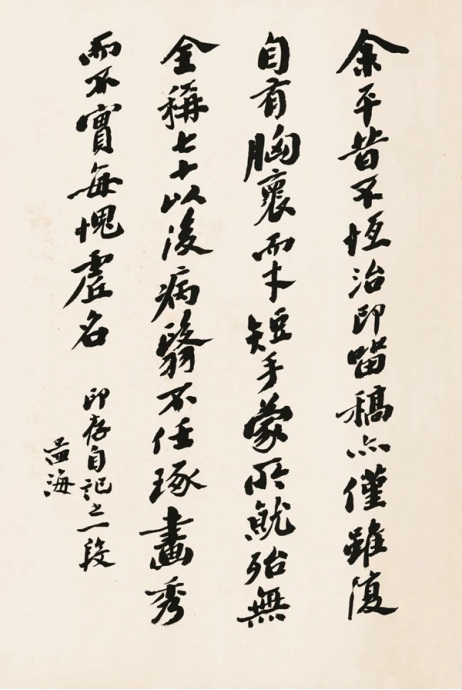 余平昔不恆治印留稿亦僅雖復
自有胸褱而才短手蒙所就殆無
全稱七十以後病翳不任琢畫秀
而不實每愧虛名
印存自記之一段
孟海